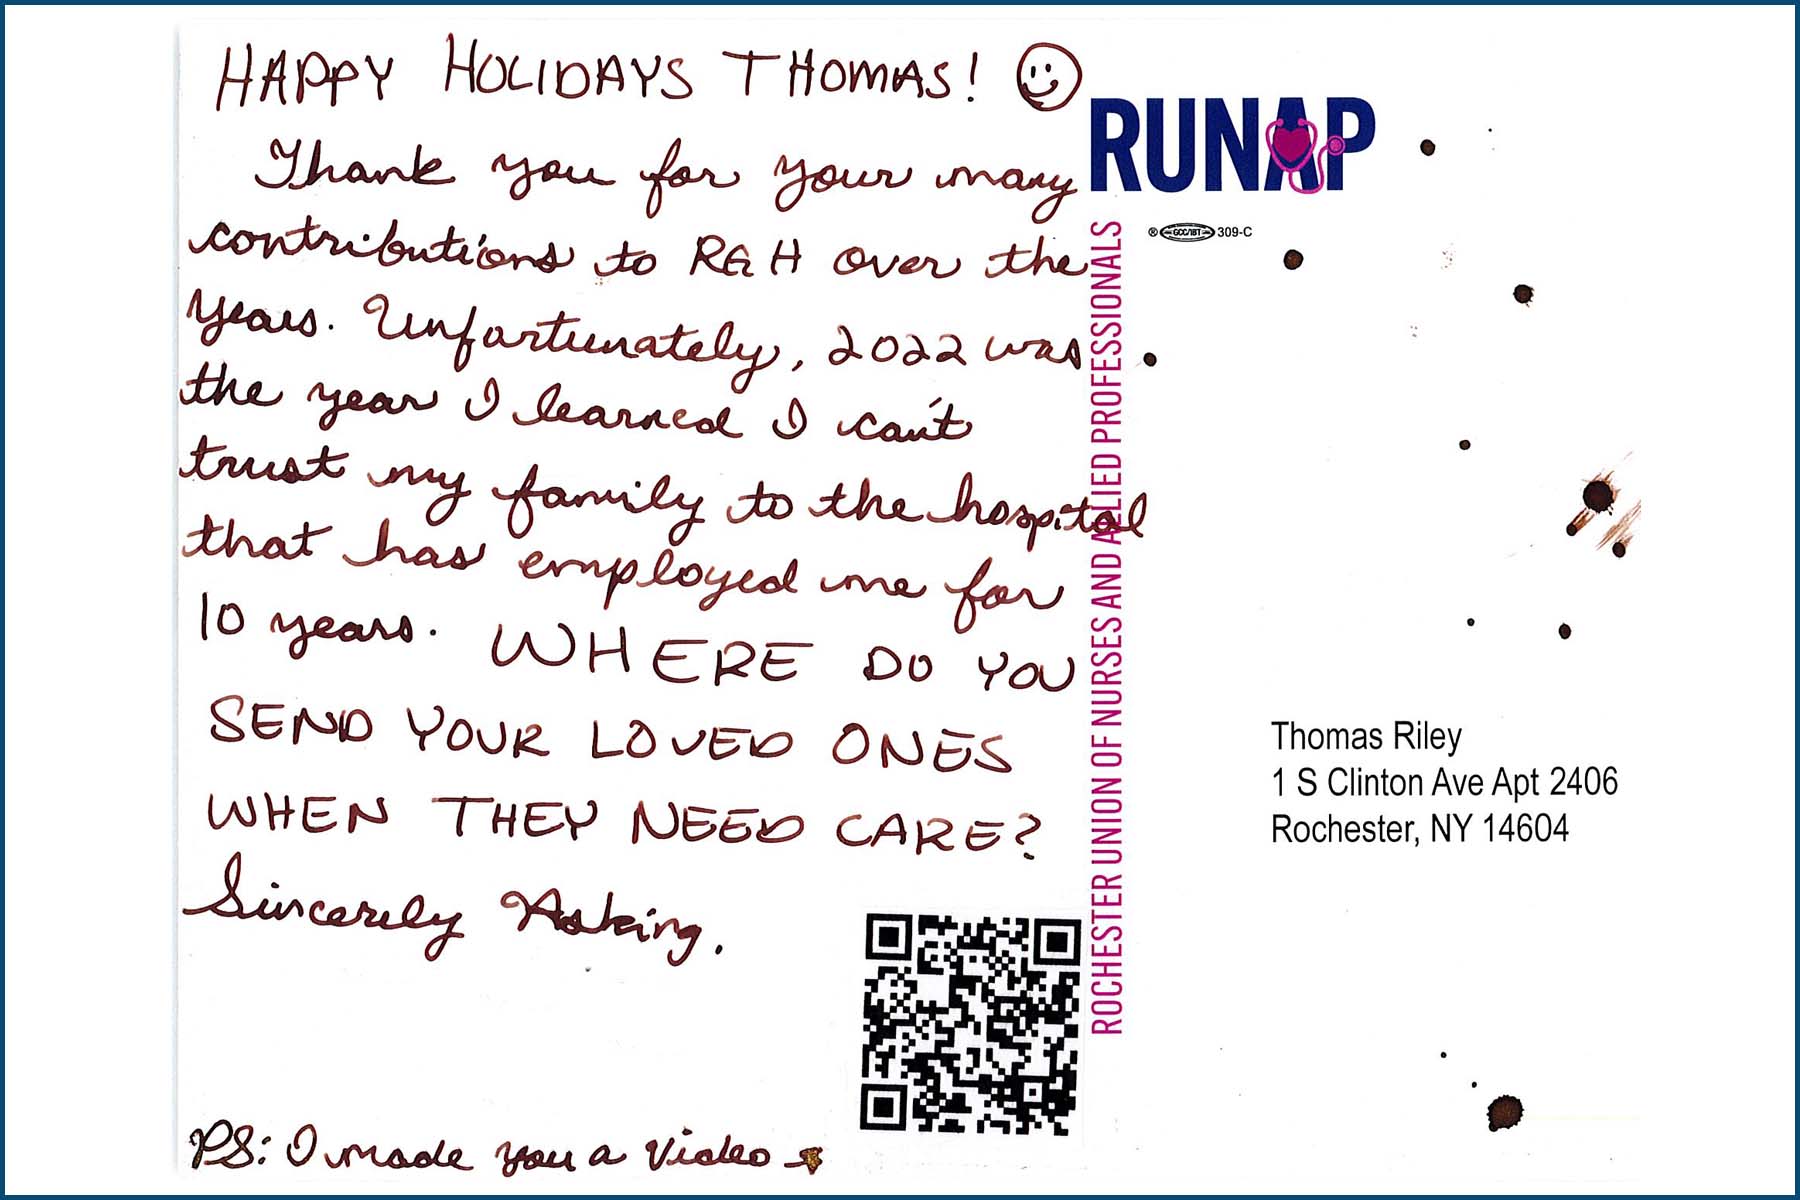 HAPPY HOLIDAYS THOMAS!
Thank you for your many
contributions to RGH over the
years. Unfortunately, 2022 was
the year I learned I can't
trust my family to the hospital
that has employed me for
10 years. WHERE DO YOU
SEND YOUR LOVED ONES
WHEN THEY NEED CARE?
Sincerely Asking.
PS: I made you a video
RUNAP
® GCC/IBT 309-C
ROCHESTER UNION OF NURSES AND ALLIED PROFESSIONALS
Thomas Riley
1 S Clinton Ave Apt 2406
Rochester, NY 14604